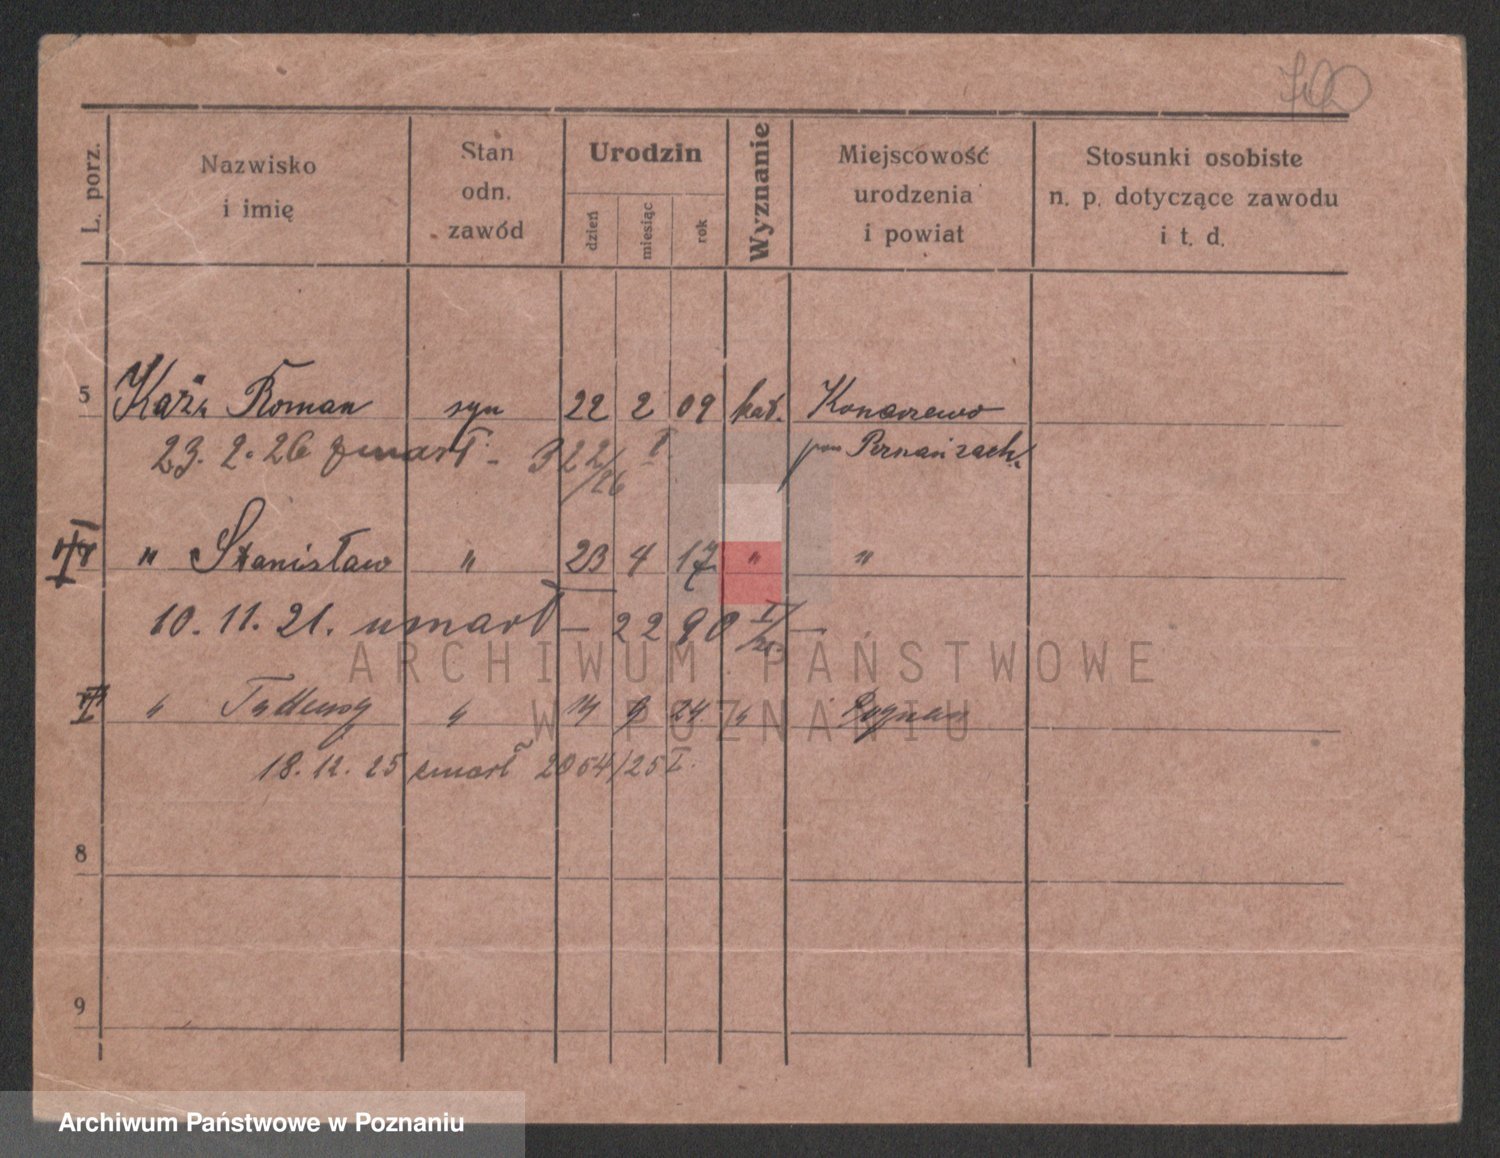 L. porz.
Nazwisko
i imię
Stan
odn.
zawód
Urodzin
dzień
miesiąc
rok
Wyznanie
Miejscowość
urodzenia
i powiat
Stosunki osobiste
n. p. dotyczące zawodu
i t. d.
5 Roman syn 22 2 09 kat. Konarzewo
23. 2. 26 zmarł - 322/26 I
pow Poznań zach.
" Stanisław " 23 4 17 " "
10. 11. 21. umarł — 2290 I/21 —
" Tadeusz " 14 9 24 " Poznań
18. 12. 25 zmarł 2054/25 I.
8
9
ARCHIWUM PAŃSTWOWE
W POZNANIU
Archiwum Państwowe w Poznaniu